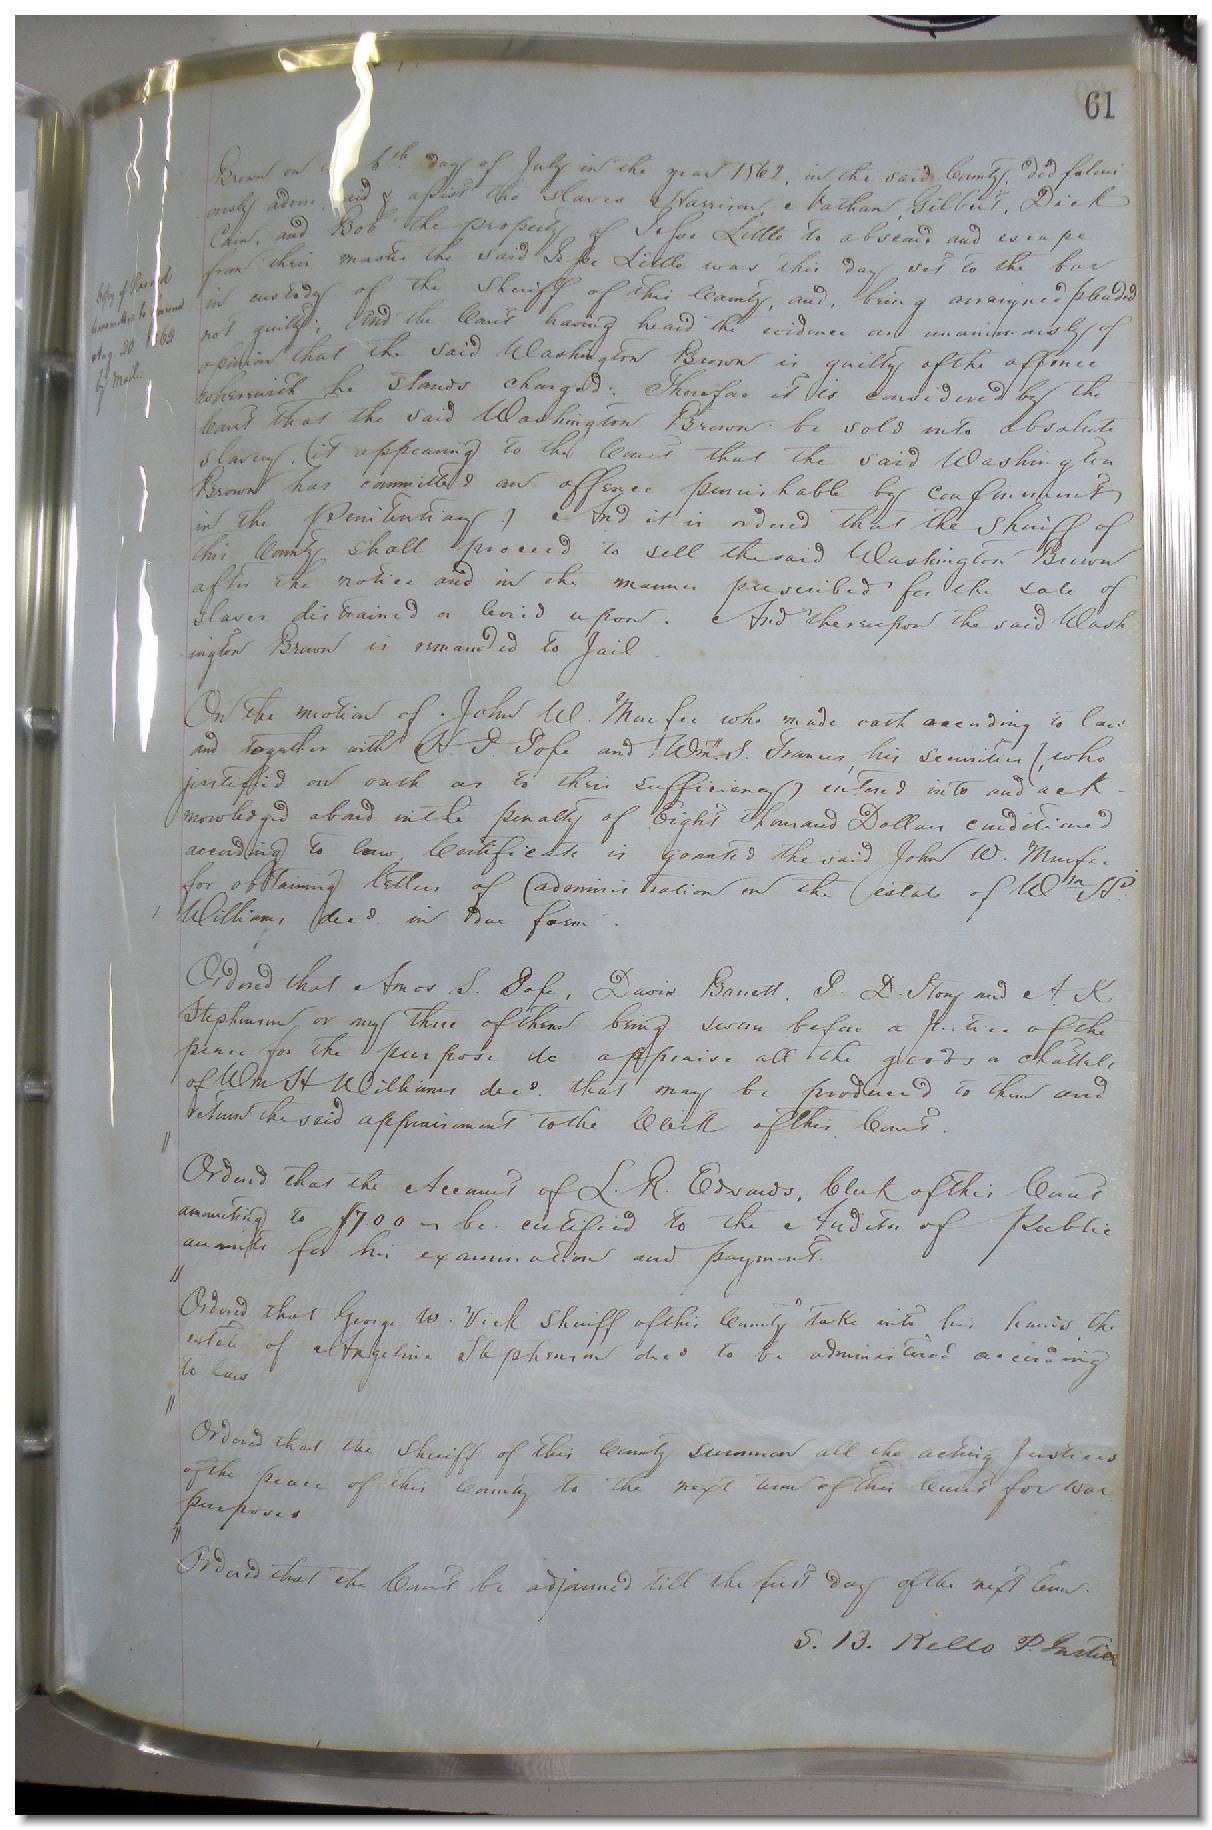 61
Brown on the 6th day of July in the year 1862, in the said County, did feloni
ously advise, aid & assist the slaves Harrison, Nathan, Gilbert, Dick
Cain, and Bob the property of Jesse Little to abscond and escape
from their master the said Jesse Little was this day set to the bar
in custody of the Sheriff of this County, and, being arraigned pleaded
not guilty: And the Court having heard the evidence are unanimously of
opinion that the said Washington Brown is guilty of the offence
wherewith he stands charged: Therefore it is considered by the
Court that the said Washington Brown be sold into absolute
slavery, (it appearing to the Court that the said Washington
Brown has committed an offence punishable by confinement
in the Penitentiary) And it is ordered that the Sheriff of
this County shall proceed to sell the said Washington Brown
after the notice and in the manner prescribed for the sale of
slaves distrained or levied upon. And thereupon the said Wash
ington Brown is remanded to Jail.
Copy of Record
to
Aug. 20
by Mail.
On the motion of John W. Murfee who made oath according to law
and together with and Wm. S. Francis, his securities (who
justified on oath as to their sufficiency) entered into and ack-
nowledged a bond in the penalty of Eight thousand Dollars conditioned
according to law, Certificate is granted the said John W. Murfee
for obtaining letters of administration on the estate of Wm H
Williams decd. in due form.
Ordered that Amos S. Pope, David Barrett, J. D. Story and A. K.
Stephenson or any three of them being sworn before a Justice of the
peace for the purpose do appraise all the goods & chattels
of Wm H Williams decd. that may be produced to them and
return the said appraisement to the Clerk of this Court.
Ordered that the Account of L. R. Edwards, Clerk of this Court
amounting to $7.00 be certified to the Auditor of Public
accounts for his examination and payment.
Ordered that George W. Vick Sheriff of this County take into his hands the
estate of Angelina Stephenson decd to be administered according
to law
Ordered that the Sheriff of this County summon all the acting Justices
of the peace of this County to the next term of this Court for war
purposes
Ordered that the Court be adjourned till the first day of the next term.
S. B. Kello P. Justice